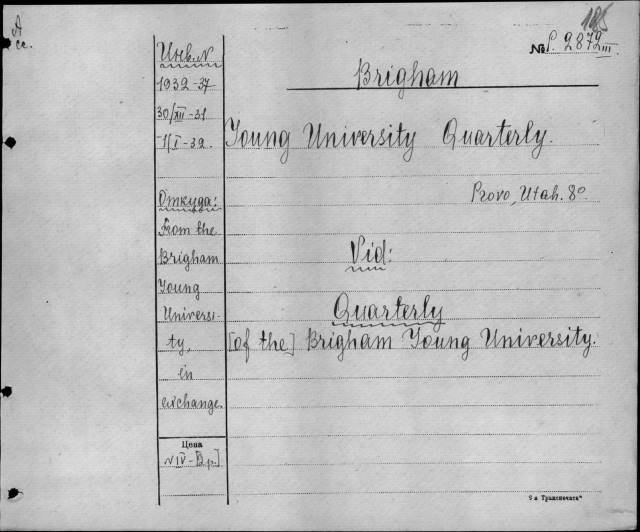 A
cc.
185
№ P. 2872 III
Инв. №
1932-37
30/XII-31
1/I-32.
Откуда:
From the
Brigham
Young
Universi-
ty,
in
exchange.
Цена
Brigham
Young University Quarterly.
Provo, Utah. 8°
Vid:
Quarterly
[of the] Brigham Young University.